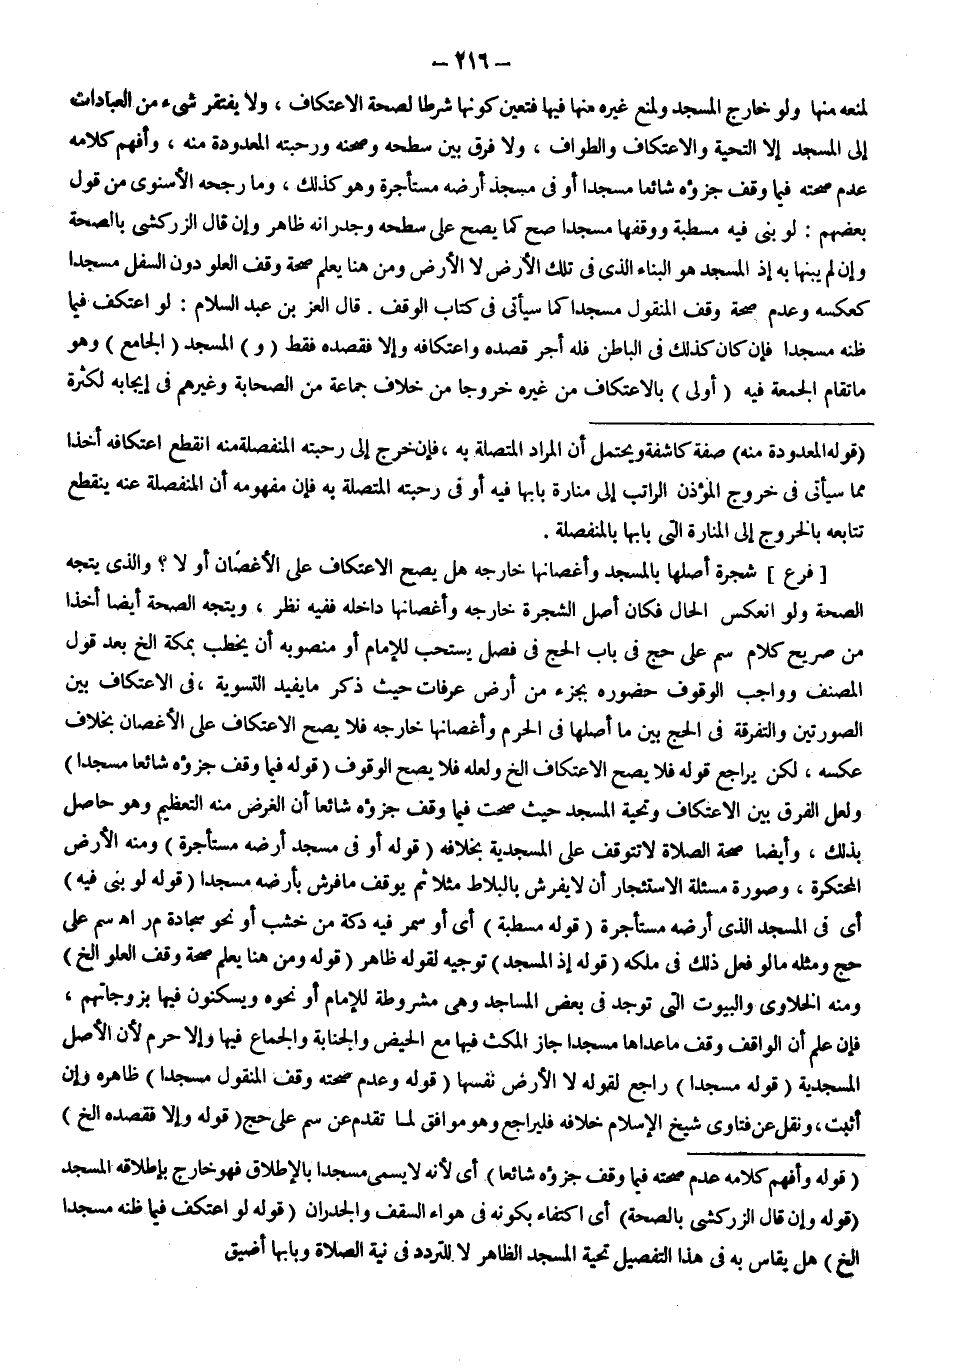 – ٢١٦ –
لمنعه منها ولو خارج المسجد ولمنع غيره منها فيها فتعين كونها شرطا لصحة الاعتكاف ، ولا يفتقر شىء من العبادات
إلى المسجد إلا التحية والاعتكاف والطواف ، ولا فرق بين سطحه وصحنه ورحبته المعدودة منه ، وأفهم كلامه
عدم صحته فيما وقف جزؤه شائعا مسجدا أو فى مسجد أرضه مستأجرة وهو كذلك ، وما رجحه الأسنوى من قول
بعضهم : لو بنى فيه مسطبة ووقفها مسجدا صح كما يصح على سطحه وجدرانه ظاهر وإن قال الزركشى بالصحة
وإن لم يبنها به إذ المسجد هو البناء الذى فى تلك الأرض لا الأرض ومن هنا يعلم صحة وقف العلو دون السفل مسجدا
كعكسه وعدم صحة وقف المنقول مسجدا كما سيأتى فى كتاب الوقف . قال العز بن عبد السلام : لو اعتكف فيما
ظنه مسجدا فإن كان كذلك فى الباطن فله أجر قصده واعتكافه وإلا فقصده فقط ( و ) المسجد ( الجامع ) وهو
ماتقام الجمعة فيه ( أولى ) بالاعتكاف من غيره خروجا من خلاف جماعة من الصحابة وغيرهم فى إيجابه لكثرة
(قوله المعدودة منه) صفة كاشفة ويحتمل أن المراد المتصلة به ، فإن خرج إلى رحبته المنفصلة منه انقطع اعتكافه أخذا
مما سيأتى فى خروج المؤذن الراتب إلى منارة بابها فيه أو فى رحبته المتصلة به فإن مفهومه أن المنفصلة عنه ينقطع
تتابعه بالخروج إلى المنارة التى بابها بالمنفصلة .
[ فرع ] شجرة أصلها بالمسجد وأغصانها خارجه هل يصح الاعتكاف على الأغصان أو لا ؟ والذى يتجه
الصحة ولو انعكس الحال فكان أصل الشجرة خارجه وأغصانها داخله ففيه نظر ، ويتجه الصحة أيضا أخذا
من صريح كلام سم على حج فى باب الحج فى فصل يستحب للإمام أو منصوبه أن يخطب بمكة الخ بعد قول
المصنف وواجب الوقوف حضوره بجزء من أرض عرفات حيث ذكر مايفيد التسوية ، فى الاعتكاف بين
الصورتين والتفرقة فى الحج بين ما أصلها فى الحرم وأغصانها خارجه فلا يصح الاعتكاف على الأغصان بخلاف
عكسه ، لكن يراجع قوله فلا يصح الاعتكاف الخ ولعله فلا يصح الوقوف ( قوله فيما وقف جزؤه شائعا مسجدا )
ولعل الفرق بين الاعتكاف وتحية المسجد حيث صحت فيما وقف جزؤه شائعا أن الغرض منه التعظيم وهو حاصل
بذلك ، وأيضا صحة الصلاة لاتتوقف على المسجدية بخلافه ( قوله أو فى مسجد أرضه مستأجرة ) ومنه الأرض
المحتكرة ، وصورة مسئلة الاستئجار أن لايفرش بالبلاط مثلا ثم يوقف مافرش بأرضه مسجدا ( قوله لو بنى فيه )
أى فى المسجد الذى أرضه مستأجرة ( قوله مسطبة ) أى أو سمر فيه دكة من خشب أو نحو سجادة م ر اه سم على
حج ومثله مالو فعل ذلك فى ملكه ( قوله إذ المسجد ) توجيه لقوله ظاهر ( قوله ومن هنا يعلم صحة وقف العلو الخ )
ومنه الخلاوى والبيوت التى توجد فى بعض المساجد وهى مشروطة للإمام أو نحوه ويسكنون فيها بزوجاتهم ،
فإن علم أن الواقف وقف ماعداها مسجدا جاز المكث فيها مع الحيض والجنابة والجماع فيها وإلا حرم لأن الأصل
المسجدية ( قوله مسجدا ) راجع لقوله لا الأرض نفسها ( قوله وعدم صحته وقف المنقول مسجدا ) ظاهره وإن
أثبت ، ونقل عن فتاوى شيخ الإسلام خلافه فليراجع وهو موافق لما تقدم عن سم على حج ( قوله وإلا فقصده الخ )
( قوله وأفهم كلامه عدم صحته فيما وقف جزؤه شائعا ) أى لأنه لايسمى مسجدا بالإطلاق فهو خارج بإطلاقه المسجد
(قوله وإن قال الزركشى بالصحة) أى اكتفاء بكونه فى هواء السقف والجدران ( قوله لو اعتكف فيما ظنه مسجدا
الخ ) هل يقاس به فى هذا التفصيل تحية المسجد الظاهر لا للتردد فى نية الصلاة وبابها أضيق